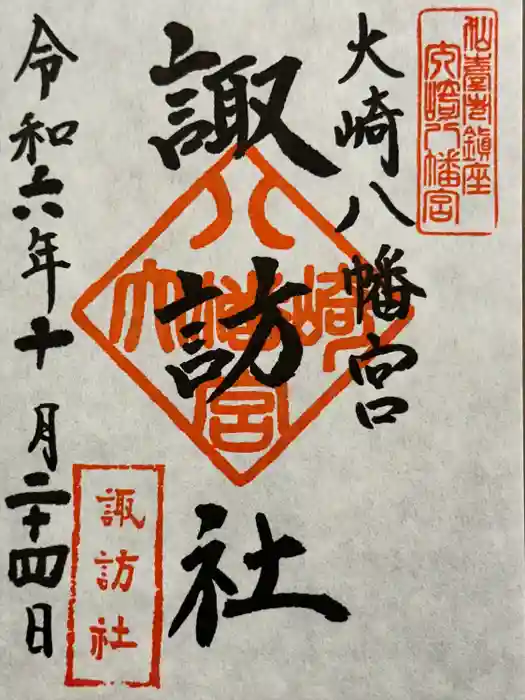 仙臺鎮座
大崎八幡宮
大崎八幡宮
諏訪社
大崎八幡宮
諏訪社
令和六年十月二十四日